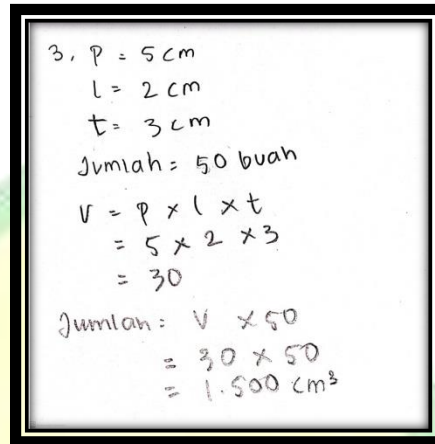 3. P = 5 cm
l = 2 cm
t = 3 cm
Jumlah = 50 buah
V = P x l x t
= 5 x 2 x 3
= 30
Jumlah = V x 50
= 30 x 50
= 1.500 cm³